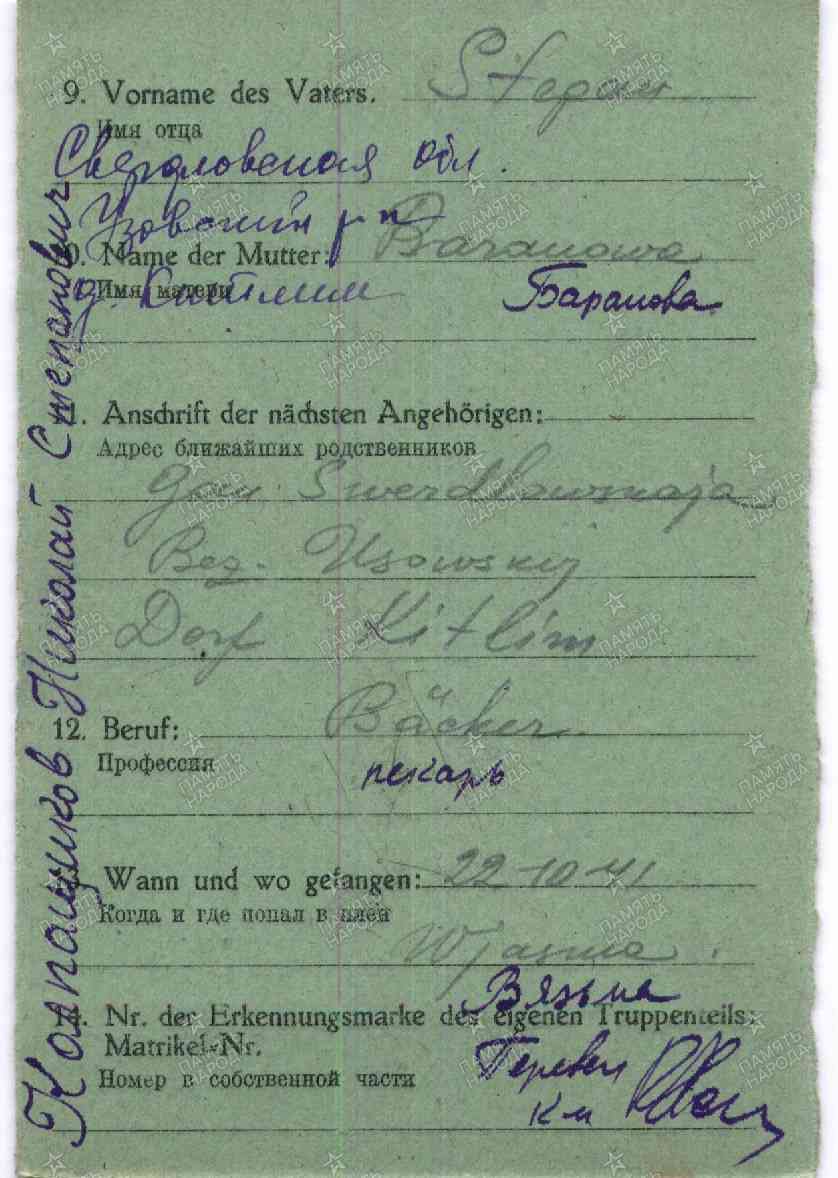 9. Vorname des Vaters. Stepan
Имя отца
Свердловская обл.
Узовский р-н
10. Name der Mutter: Baranowa
Имя матери
д. Китлим
Баранова
11. Anschrift der nächsten Angehörigen:
Адрес ближайших родственников
Gau Swerdlowskaja
Bez. Usowskij
Dorf Kitlim
12. Beruf: Bäcker
Профессия
пекарь
13. Wann und wo gefangen: 22-10-41
Когда и где попал в плен
Wjasma.
Вязьма
14. Nr. der Erkennungsmarke des eigenen Truppenteils:
Matrikel-Nr.
Номер в собственной части
Колпащиков Николай Степанович
ПАМЯТЬ НАРОДА